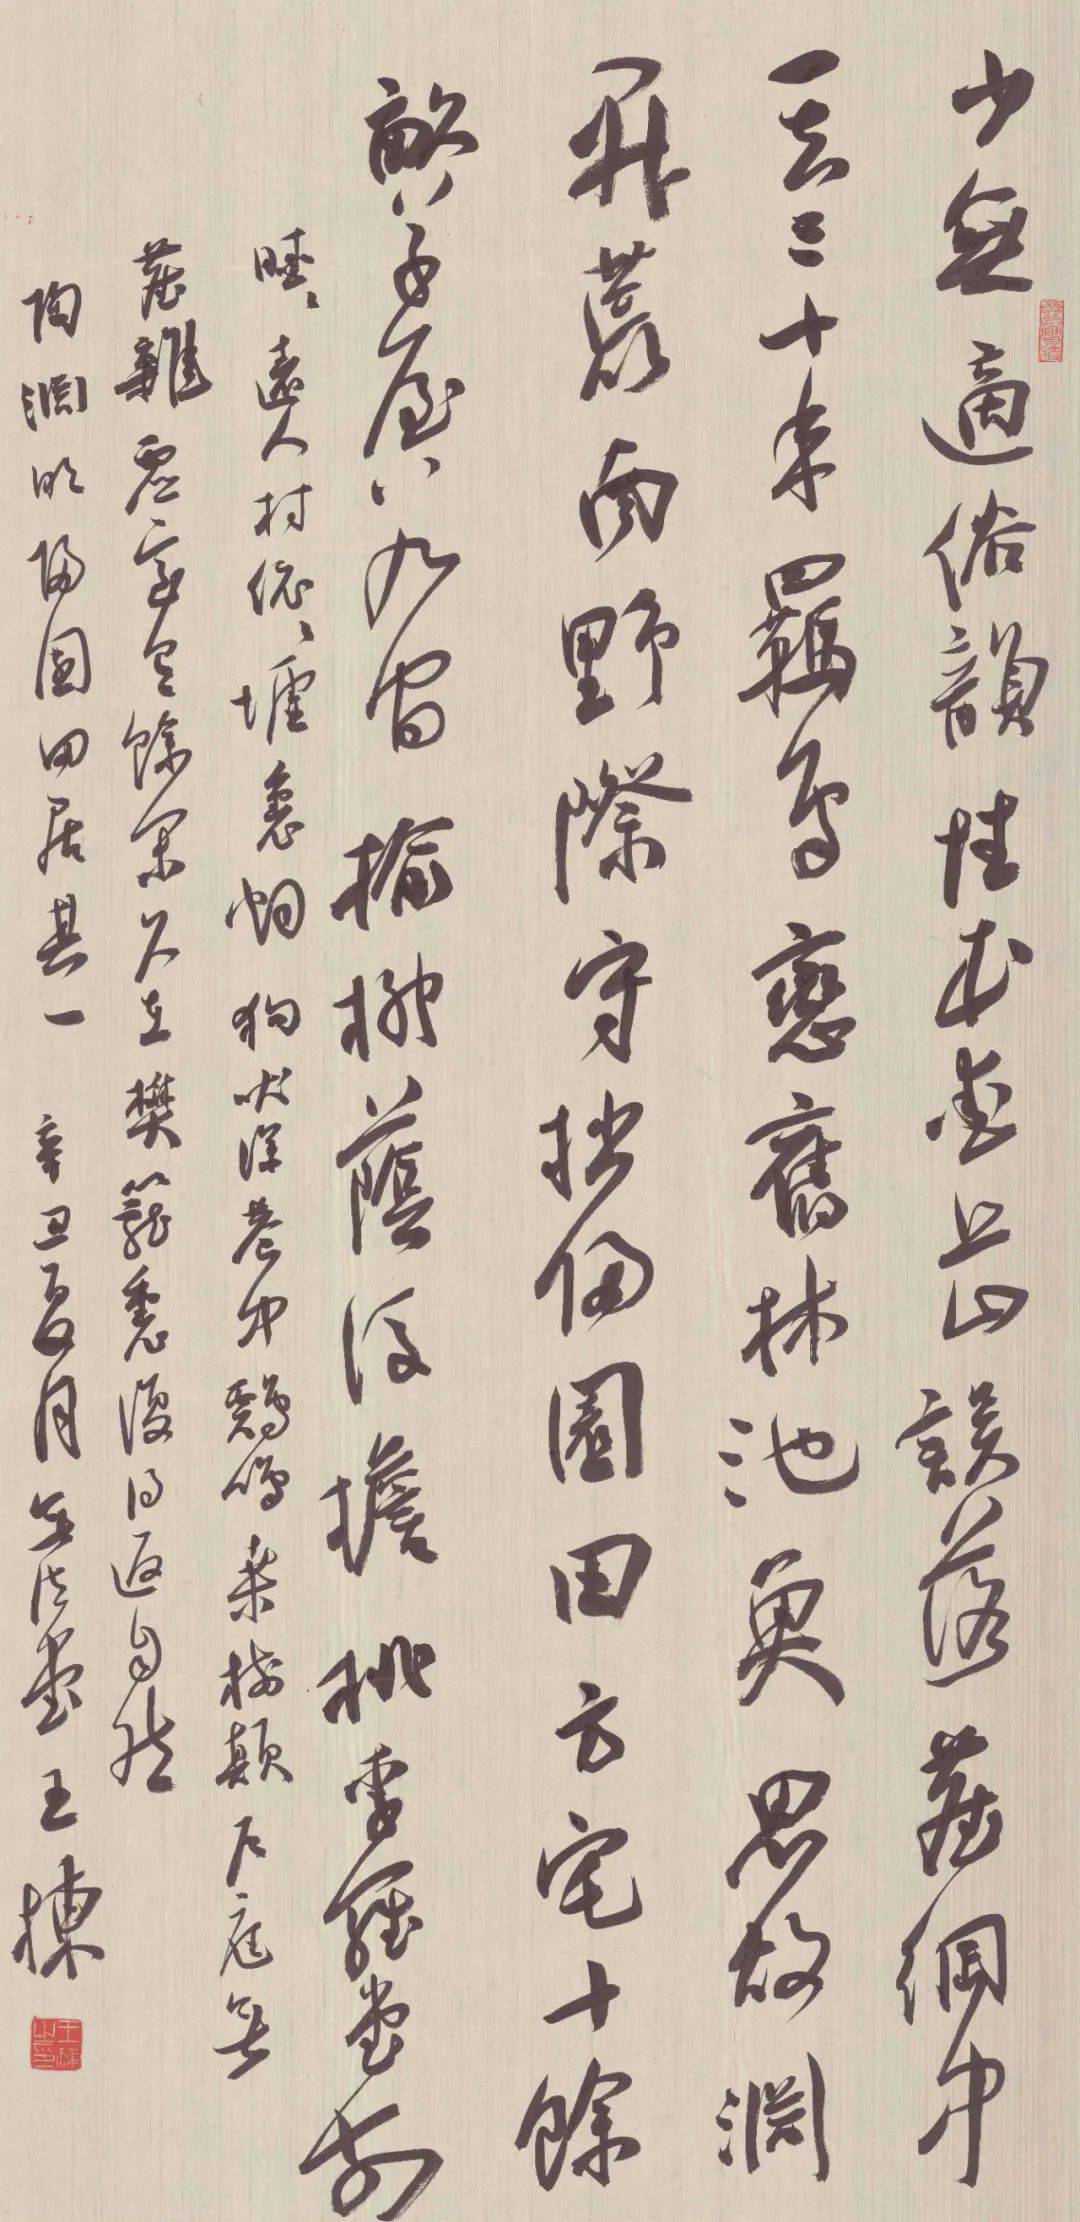 少無適俗韻性本愛丘山誤落塵網中
一去三十年羈鳥戀舊林池魚思故淵
開荒南野際守拙歸園田方宅十餘
畝草屋八九間榆柳蔭後檐桃李羅堂前
曖曖遠人村依依墟裏烟狗吠深巷中鷄鳴桑樹顛戶庭無
塵雜虛室有餘閑久在樊籠裏復得返自然
陶淵明歸園田居其一 辛丑夏月 堂王棟
王棟之印